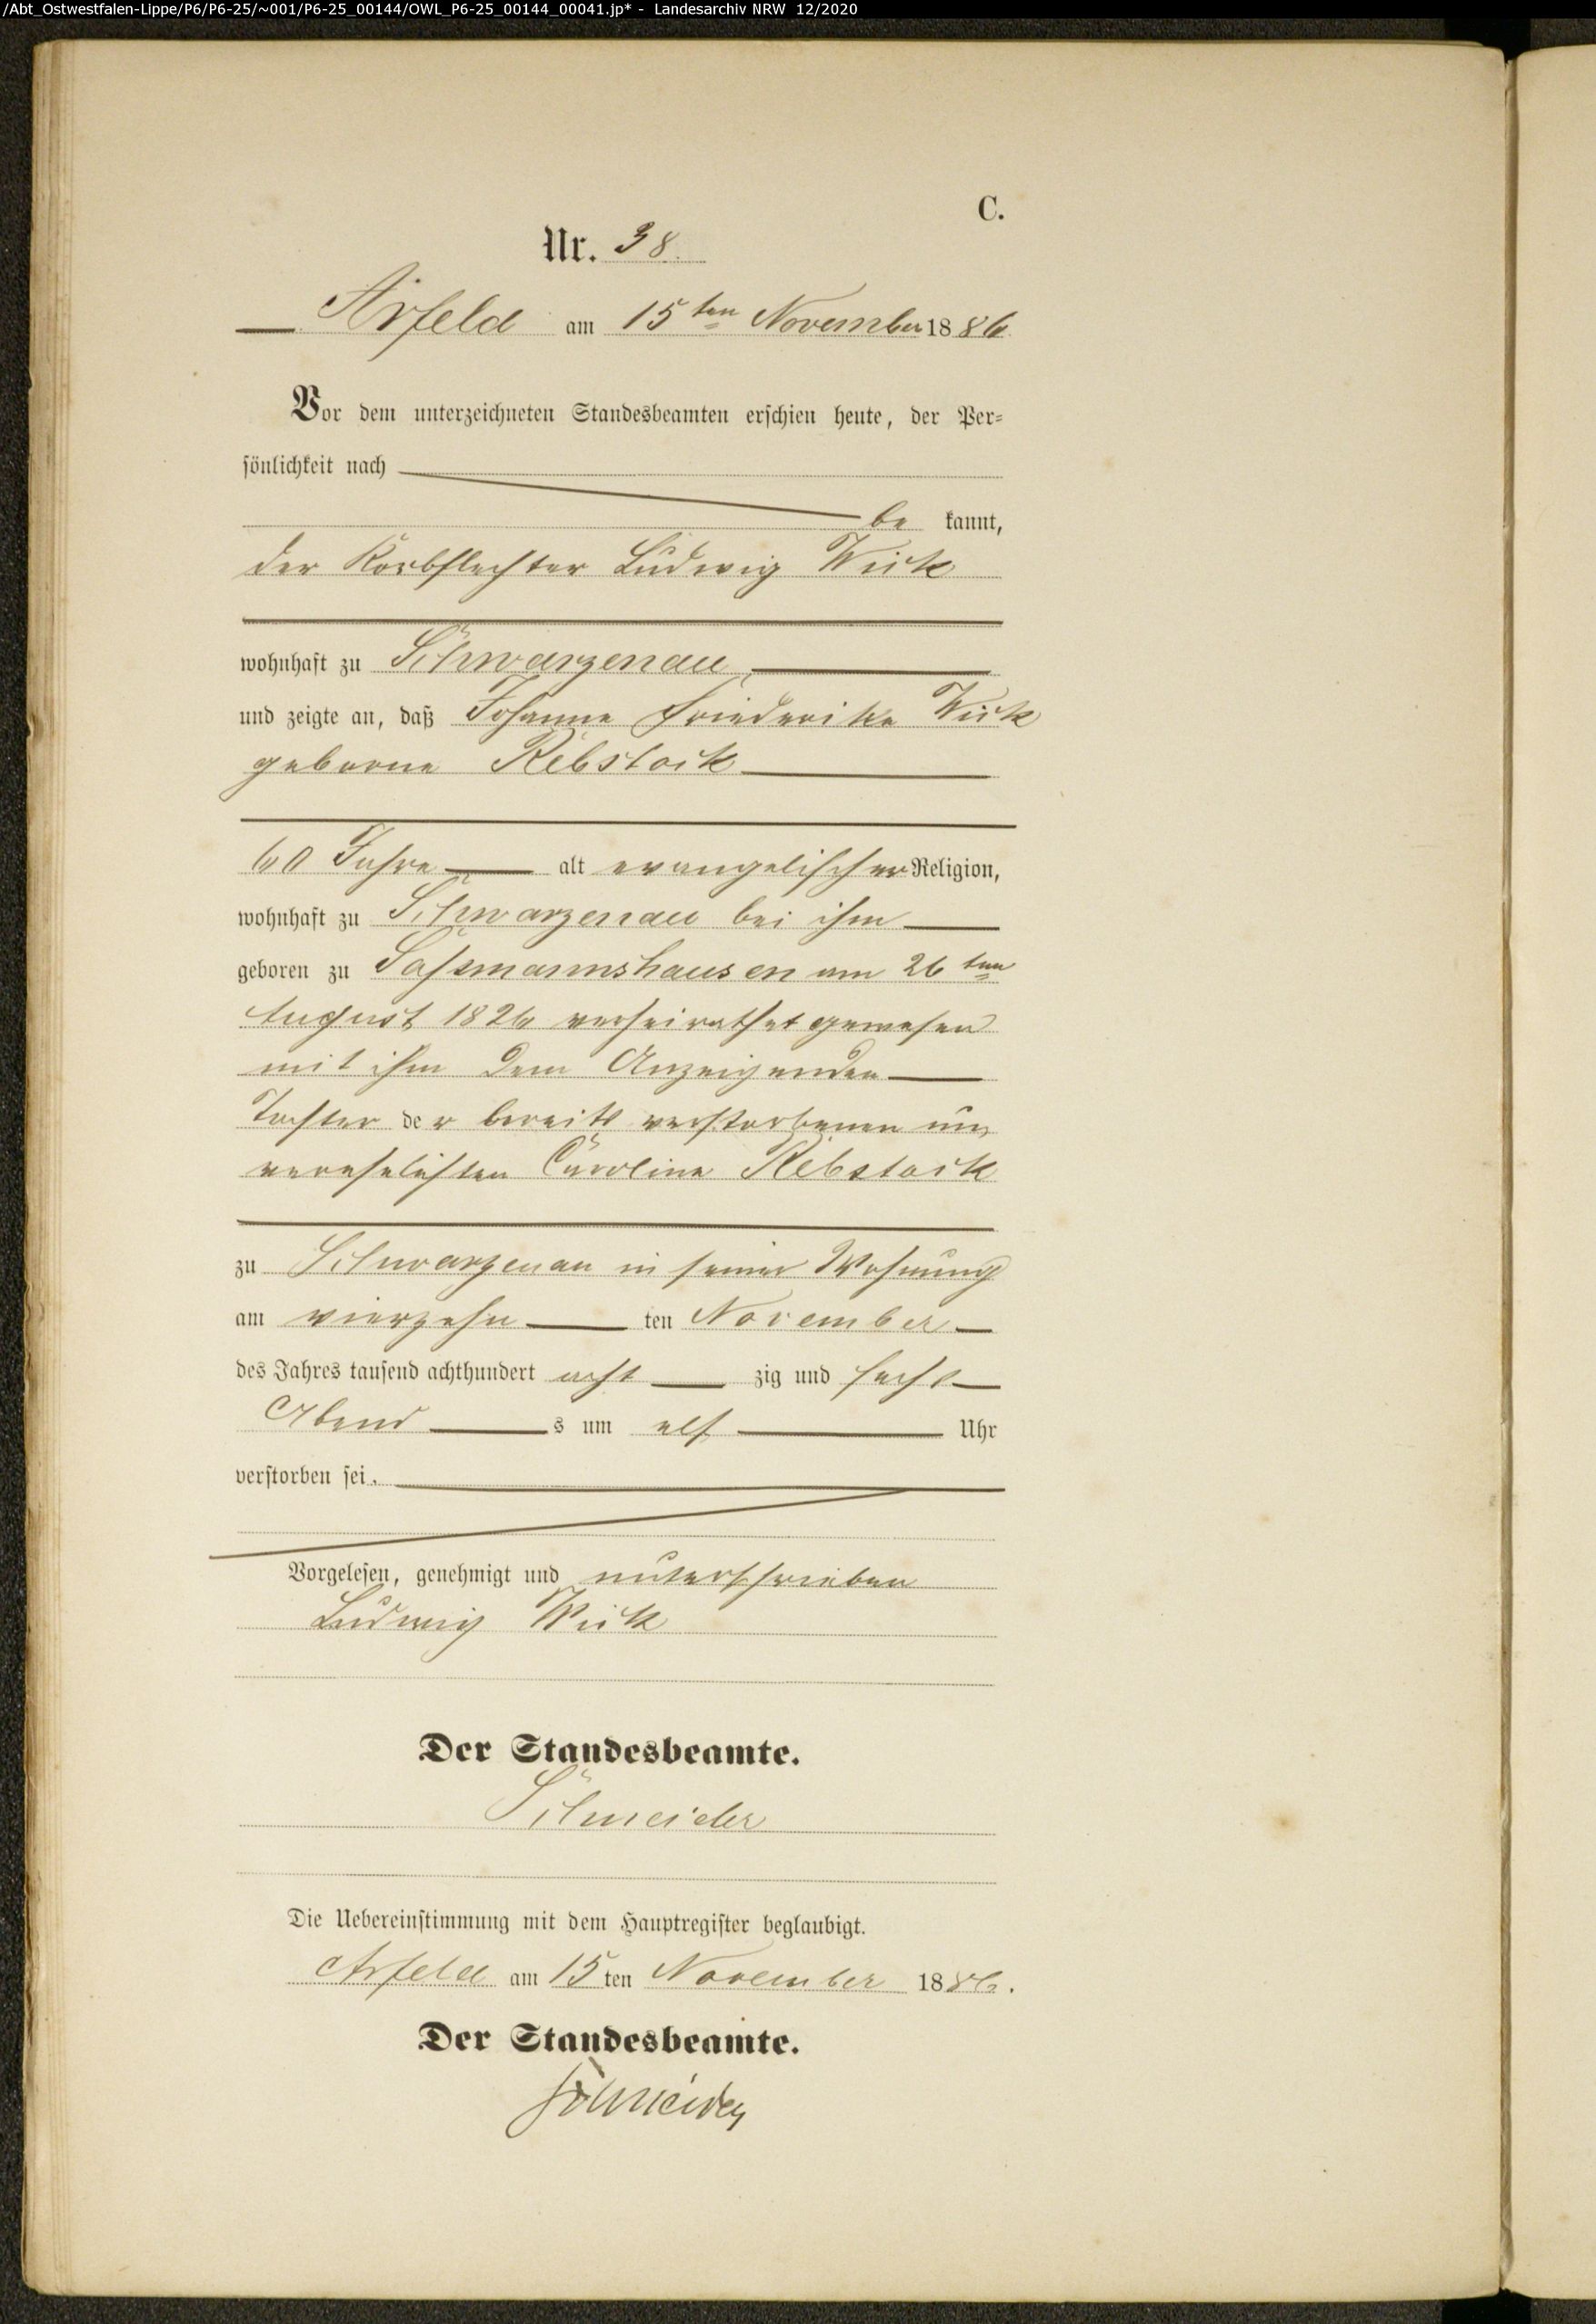 /Abt_Ostwestfalen-Lippe/P6/P6-25/~001/P6-25_00144/OWL_P6-25_00144_00041.jp* - Landesarchiv NRW 12/2020
C.
Nr. 38.
Arfeld am 15ten November 1886
Vor dem unterzeichneten Standesbeamten erschien heute, der Per-
sönlichkeit nach
be kannt,
der Korbflechter Ludwig Wick
wohnhaft zu Schwarzenau,
und zeigte an, daß Johanne Friederike Wick
geborne Rebstock
60 Jahre alt evangelischer Religion,
wohnhaft zu Schwarzenau bei ihm
geboren zu Saßmannshausen am 26ten
August 1826 verheirathet gewesen
mit ihm dem Anzeigenden
Tochter der bereits verstorbenen un
verehelichten Caroline Rebstock
zu Schwarzenau in seiner Wohnung
am vierzehn ten November
des Jahres tausend achthundert acht zig und sechs
Abend s um elf Uhr
verstorben sei.
Vorgelesen, genehmigt und unterschrieben
Ludwig Wick
Der Standesbeamte.
Schneider
Die Uebereinstimmung mit dem Hauptregister beglaubigt.
Arfeld am 15 ten November 1886.
Der Standesbeamte.
Schneider